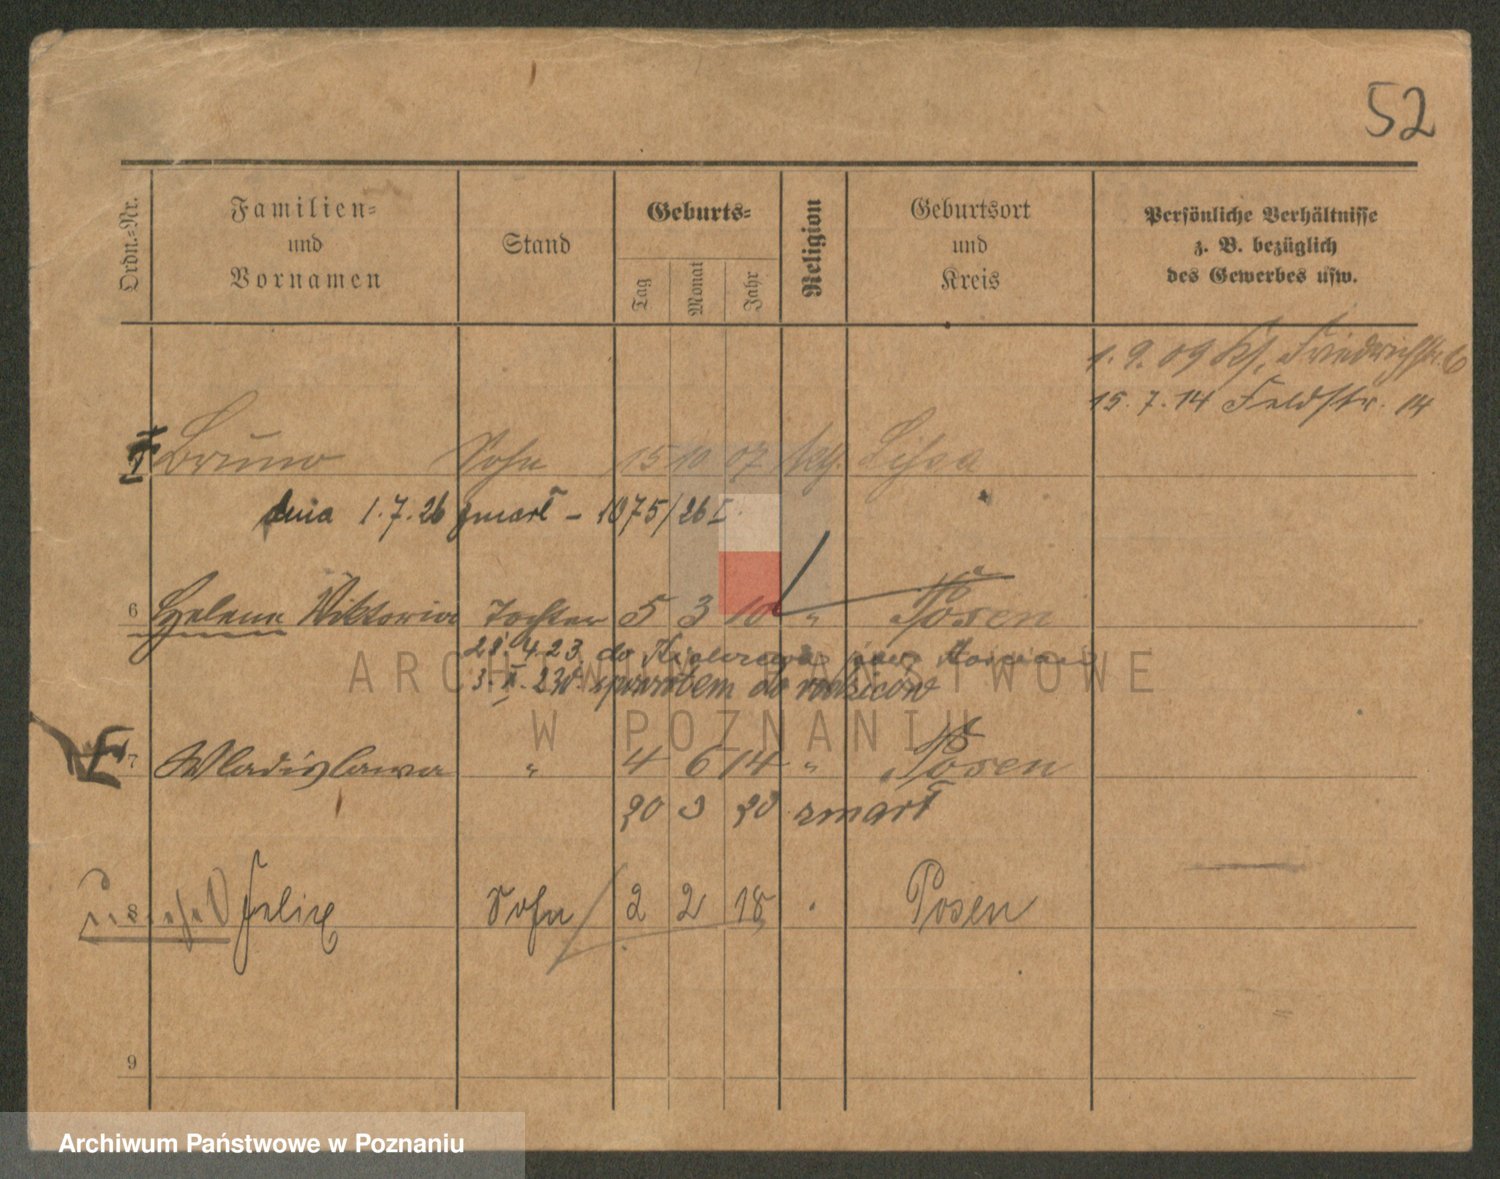 52
Ordn.-Nr.
Familien-
und
Vornamen
Stand
Geburts-
Tag
Monat
Jahr
Religion
Geburtsort
und
Kreis
Persönliche Verhältnisse
z. B. bezüglich
des Gewerbes usw.
1. 9. 09 Friedrichstr. 6
15. 7. 14 Feldstr. 14
Bruno Sohn 15 10 07 Lissa
dnia 1. 7. 26 zmarł - 1075/26 I
6 Helene Viktoria Tochter 5 3 10 " Posen
28. 4. 23. do
3. 23 z powrotem do rodziców
7 Wladislawa " 4 6 14 " Posen
20 3 20 zmarł
8 Felix Sohn 2 2 18 Posen
9
ARCHIWUM PAŃSTWOWE
W POZNANIU
Archiwum Państwowe w Poznaniu